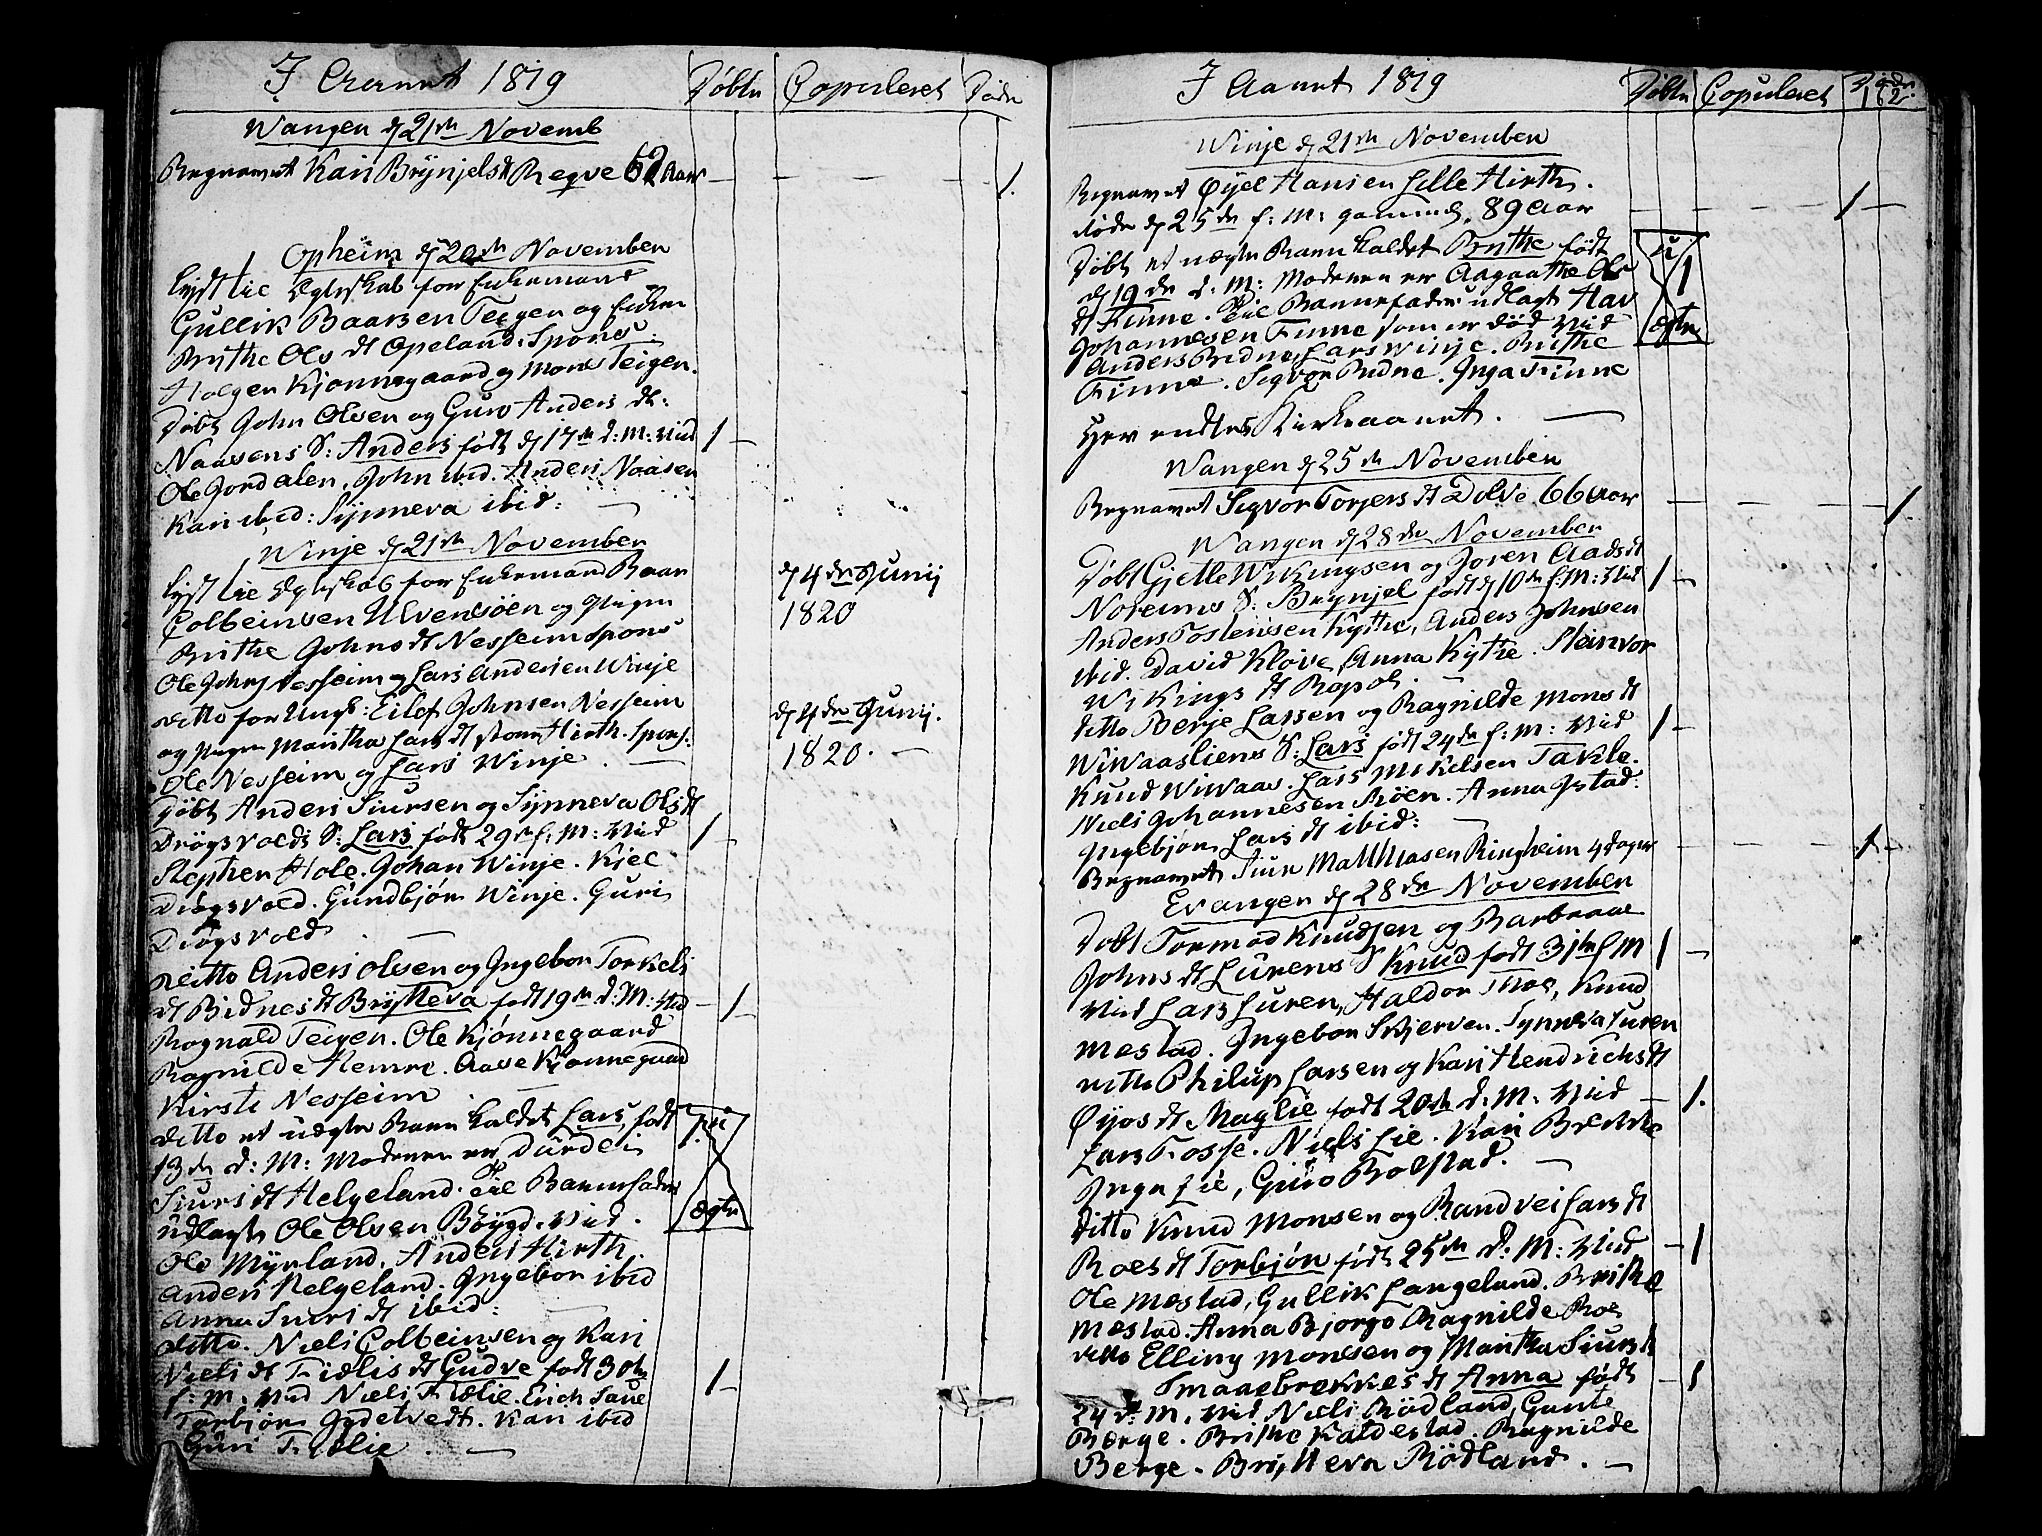 I Aaret 1819
Døbte Copuleret Døde
Wangen d 21de Novemb
Begravet Kari Brynjelsdt Reqve 62 Aar 1.
Opheim d 20de November
lyst til Ægteskab for Enkemand
Gullik Baarsen Teigen og Enken
Brithe Ols dt Opeland. Spons:
Holgen Kjønnegaard og Mons Teigen.
Døbt John Olsen og Guro Anders dt:
Naasens S: Anders født d 17de d: M: Vid 1
Ole Jordalen, John ibid. Anders Naasen
Kari ibid: Synneva ibid:
Winje d 21de November
lyst til Ægteskab for Enkemand Baar
Colbeinsen Ulvensøen og Pigen
Brithe Johns dt Nesheim Spons
Ole Johns Nesheim og Lars Andersen Winje
d 4de Junij
1820
ditto for Ungk: Eilef Johnsen Nesheim
og Pigen Maritha Lars dt store Hirth. Spons:
Ole Nesheim og Lars Winje.
d 4de Junij.
1820.
Døbt Anders Siursen og Synneva Ols dt
Drøgsvolds S: Lars født 29de f: M: Vid 1
Stephen Hole. Johan Winje. Kiel
Drøgsvold. Gundbjør Winje. Guri
Drøgsvold
Ditto Anders Olsen og Ingebor Torkels
dt Bidnes dt Brytteva født 19de d: M: Vid 1
Rognald Teigen. Ole Kjønnegaard
Ragnilde Hemre. Aase Kjønnegaard
Kirsti Nesheim
ditto et uægte Barn kaldet Lars, født 1. u
13de d: M: Moderen er Durdei
Siurs dt Helgeland. Til Barnefader
udlagt Ole Olsen Bøygd. Vid. ægte
Ole Myrland. Anders Hirth.
Anders Helgeland. Ingebor ibid
Anna Siurs dt ibid:
ditto. Niels Colbeinsen og Kari
Niels dt Fiælis dt Gudve født 30te 1
f: M: Vid Niels Fiælie. Erich Saue
Torbjør Gjdetvedt. Kari ibid
Guri Fiælie.
I Aaret 1819
Døbte Copuleret Døde
162
Winje d 21de November
Begravet Øyel Hansen Lille Hirth.
døde d 25de f: M: gammel, 89 Aar 1
Døbt et uægte Barn kaldet Brythe født u 1
d 19de d: M: Moderen er Aagaathe Ols
dt Finne. Til Barnefader udlagt Hav
Johannesen Finne som er død Vid ægte
Anders Bidne, Lars Winje. Brithe
Finne. Sigvor Bidne. Inga Finne
Her endtes Kirkeaaret.
Wangen d 25de November
Begravet Sigvor Torjers dt Dolve 66 Aar 1
Wangen d 28de November
Døbt Gjetle Wikingsen og Joren Aads dt
Noreims S: Brynjel født d 10de f: M: Vid 1
Anders Tostensen Kythe, Anders Johnsen
ibid. David Kløve. Anna Kythe. Steinvor
Wikings dt Rapol.
ditto Berje Larsen og Ragnilde Mons dt
Wiwaasliens S: Lars født 24de f: M: Vid 1
Knud Wiwaas. Lars Mikelsen Takle.
Niels Johannesen Røen. Anna Jstad.
Ingebjør Lars dt ibid:
Begravet Siur Matthiasen Ringheim 4 dager 1
Evangen d 28de November
Døbt Tormod Knudsen og Barbraae
Johns dt Lurens S Knud født 31te f M 1
Vid Lars Luren, Haldor Thoe, Knud
Mestad. Ingebor Skjerven. Synneva Luren
ditto Philup Larsen og Kari Hendrichs dt
Øyos dt Maglie født 20de d: M: Vid 1.
Lars Fosse. Niels Lie. Kari Brekke
Inga Lie, Guro Bolstad.
ditto Knud Monsen og Randvei Lars dt
Roes dt Torbjør født 25de d: M: Vid 1
Ole Mestad, Gullik Langeland. Brithe
Mestad. Anna Bjorgo Ragnilde Roe
ditto Elling Monsen og Maritha Siurs dt
Smaaebrekkes dt Anna født 1
24 d: M. Vid Niels Rødland, Gunte
Berge. Brithe Kaldestad. Ragnilde
Berge. Brytteva Rødland.